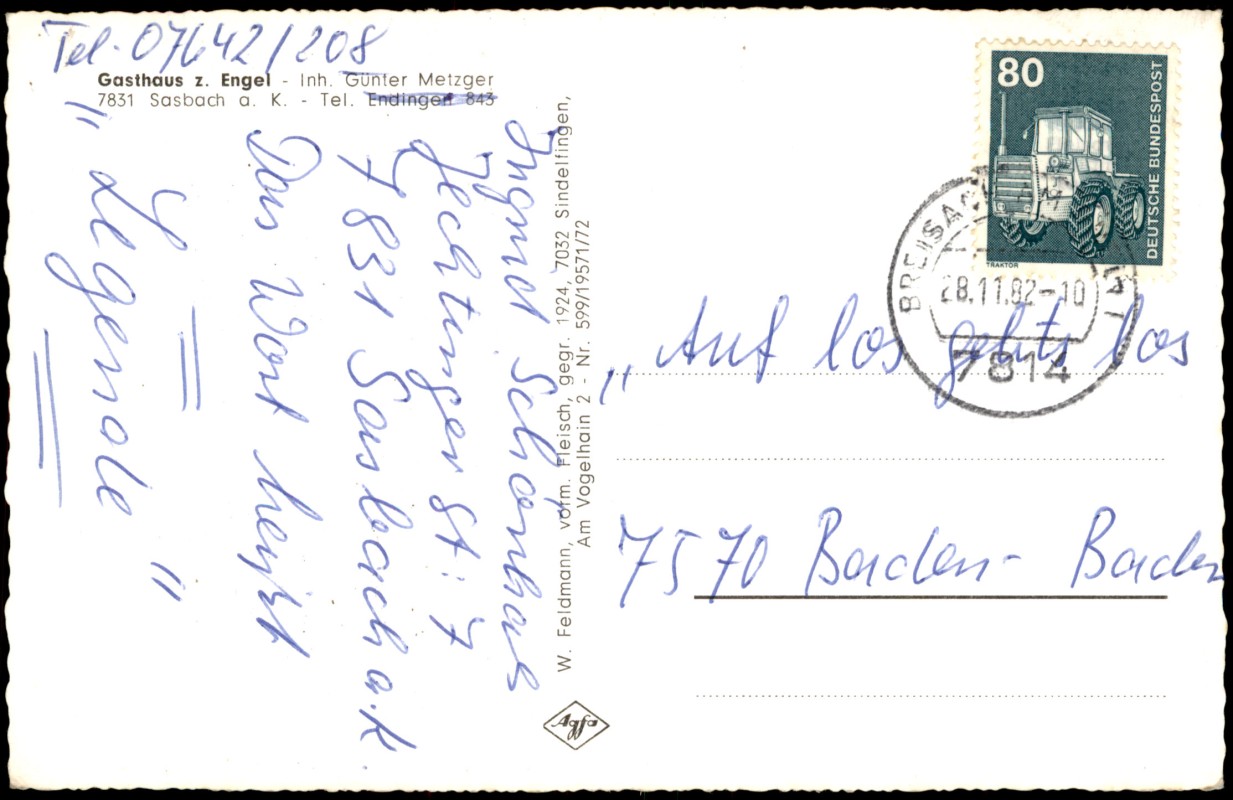 Tel. 07642/208
Gasthaus z. Engel - Inh. Günter Metzger
7831 Sasbach a. K. - Tel. Endingen 843
Jechtingerst. 7
7831 Sasbach a. K
Das Wort heißt
" Legende "
W. Feldmann, vorm. Fleisch, gegr. 1924, 7032 Sindelfingen,
Am Vogelhain 2 - Nr. 599/19571/72
Agfa
80
DEUTSCHE BUNDESPOST
TRAKTOR
BREISACH
28.11.82-10
7814
" Auf los gehts los
7570 Baden-Baden